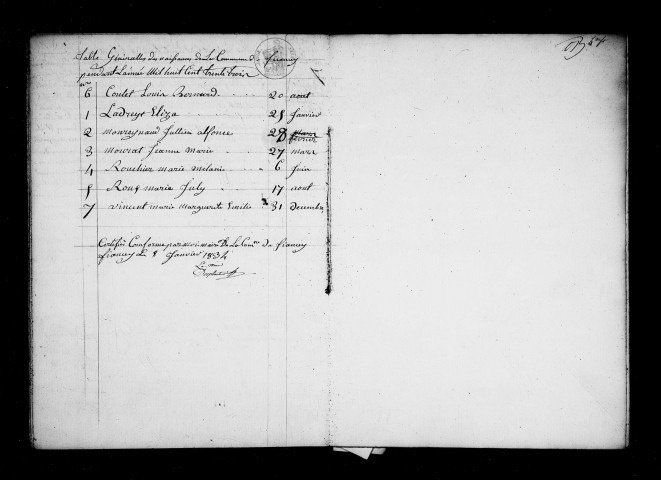 Table Généralles des naissances de La Commune de francey
pendant L'année Mil huit Cent trente trois
6 Coulet Louis Bernard 20 aout
1 Ladreyt Eliza 25 janvier
2 mouneynaud Jullien alfonce 28 février
3 mourat jeanne marie 27 mars
4 Rouchier marie mélanie 6 juin
5 Roux marie july 17 aout
7 vincent marie marguerite Emilie 31 decembre
Certifié Conforme par moi maire De La Comne de francey
francey Le 8 janvier 1834
Le maire